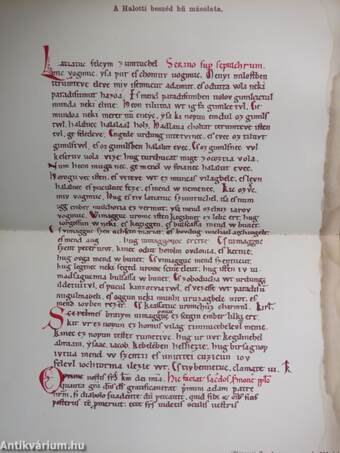 A Halotti beszéd hű másolata.
Latiatuc feleym zumtuchel Sermo sup sepulchrum.
mic vogmuc. yſa pur eſ chomuv uogmuc. Menyi miloſtben
terumteve eleve miv iſemucut adamut. eſ odutta vola neki
paradiſumut hazoa. Eſ mend paradiſumben uolov gimilcictul
munda neki elnie. Heon tilutoa wt ig fa gimilce tvl. Ge
mundoa neki meret nu eneyc. yſa ki nopun emdul oz gimilſ
tvl. halalnec halalaal holz. Hadlaua choltat terumteve iſten
tvl. ge feledeve. Engede urdung intetvinec. eſ evec oz tiluvt
gimilſtvl. eſ oz gimilſben halalut evec. Eſ oz gimilſnec vvl
keſeruv uola vize. hug turchucat mige zocoztia vola.
Num heon muga nec. ge mend w foianec halalut evec.
Horogu vec iſten. eſ veteve wt ez muncaſ vilagbele. eſ levn
halalnec eſ puculnec feze. eſ mend w nemenec. Kic ozvc.
miv vogmuc. Hug eſ tiv latiatuv ſzumtuchel. iſa eſ num
igg ember mulchotia ez vermut. yſa mend ozchuz iarov
vogmuc. Wimagguc uromv iſten kegilmet ez lelic ert. hug
iorgoſſun w neki. eſ kegiggen. eſ bulſaſſa mend w bunet.
Eſ vimagguc ſzen achſcin mariat. eſ bovdug michael archangelt.
eſ mend hug uimaggonoc erette. Eſ uimagguc
ſzent peter urot. kinec odut hotolm ovdonia. eſ ketnie.
hug ovga mend w bunet. Eſ vimagguc mend ſzentucut.
hug legenec neki ſeged uromc ſcine eleut. hug iſten iv ui
madſagucmia bulſaſſa w bunet. Eſ zoboducha wt urdung
ildetuitvl. eſ pucul kinzotviatwl. eſ vezeſſe wt paradiſu
nugulmabeli. eſ oggun neki munhi uruzagbele utot. eſ
mend iovben rezet. Eſ keaſſatuc uromchuz charmul. Kir.
Scerelmeſ bratym uimagomuc ez ſcegin ember lilki ert.
kit vr ez nopun ez homuſ vilag timnucebelevl mente.
kinec ez nopun teſtet tumetivc. hug ur uvt kegilmehel
abraam. yſaac. iacob. kebeleben helhezie. hug birſagnop
ivtva mend w ſzentii eſ unuttei cuzicun iov
felevl iochtotnia ilezie wt. Eſ tivbennetuc. clamate iii. K.
frſ km dei mia. Hic faciat ſacdoſ ſmone pplo
quanta gra dnſ adam patre
nrm. ſi diabolo ſuadente ſibi ſuiſ
poſteriſ ecce frſ uidetiſ oculiſ ueſtriſ